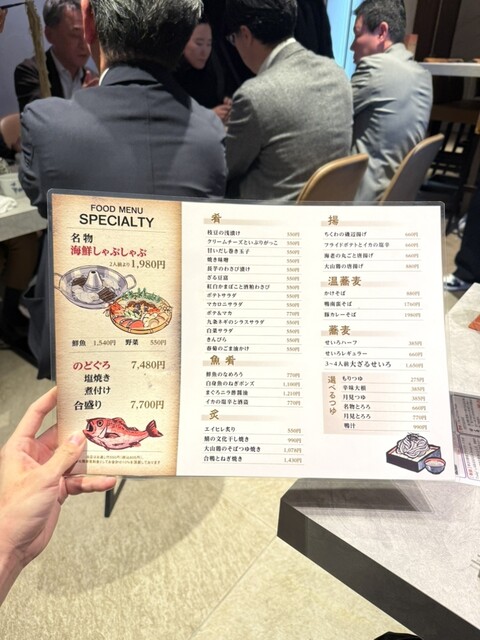 FOOD MENU
SPECIALTY
名物
海鮮しゃぶしゃぶ
2人前より 1,980円
鮮魚 1,540円 野菜 550円
のどぐろ 7,480円
塩焼き
煮付け
合盛り 7,700円
肴
枝豆の浅漬け 550円
クリームチーズといぶりがっこ 550円
甘いだし巻き玉子 550円
焼き味噌 550円
長芋のわさび漬け 550円
ざる豆腐 550円
紅白かまぼこと唐粕わさび 550円
ポテトサラダ 550円
マカロニサラダ 550円
ポテ&マカ 770円
九条ネギのシラスサラダ 550円
白菜サラダ 550円
きんぴら 550円
春菊のごま油かけ 550円
魚肴
鮮魚のなめろう 770円
白身魚のねぎポンズ 1,100円
まぐろニラ醤油 1,210円
イカの塩辛と酒盗 770円
炙
エイヒレ炙り 550円
鯖の文化干し焼き 990円
大山鶏のそばつゆ焼き 1,078円
合鴨とねぎ焼き 1,430円
揚
ちくわの磯辺揚げ 660円
フライドポテトとイカの塩辛 660円
海老の丸ごと唐揚げ 660円
大山鶏の唐揚げ 880円
温蕎麦
かけそば 880円
鴨南蛮そば 1760円
豚カレーそば 1980円
蕎麦
せいろハーフ 385円
せいろレギュラー 660円
3〜4人前 大ざるせいろ 1,650円
選べるつゆ
もりつゆ 275円
辛味大根 385円
月見つゆ 385円
名物とろろ 660円
月見とろろ 770円
鴨汁 990円